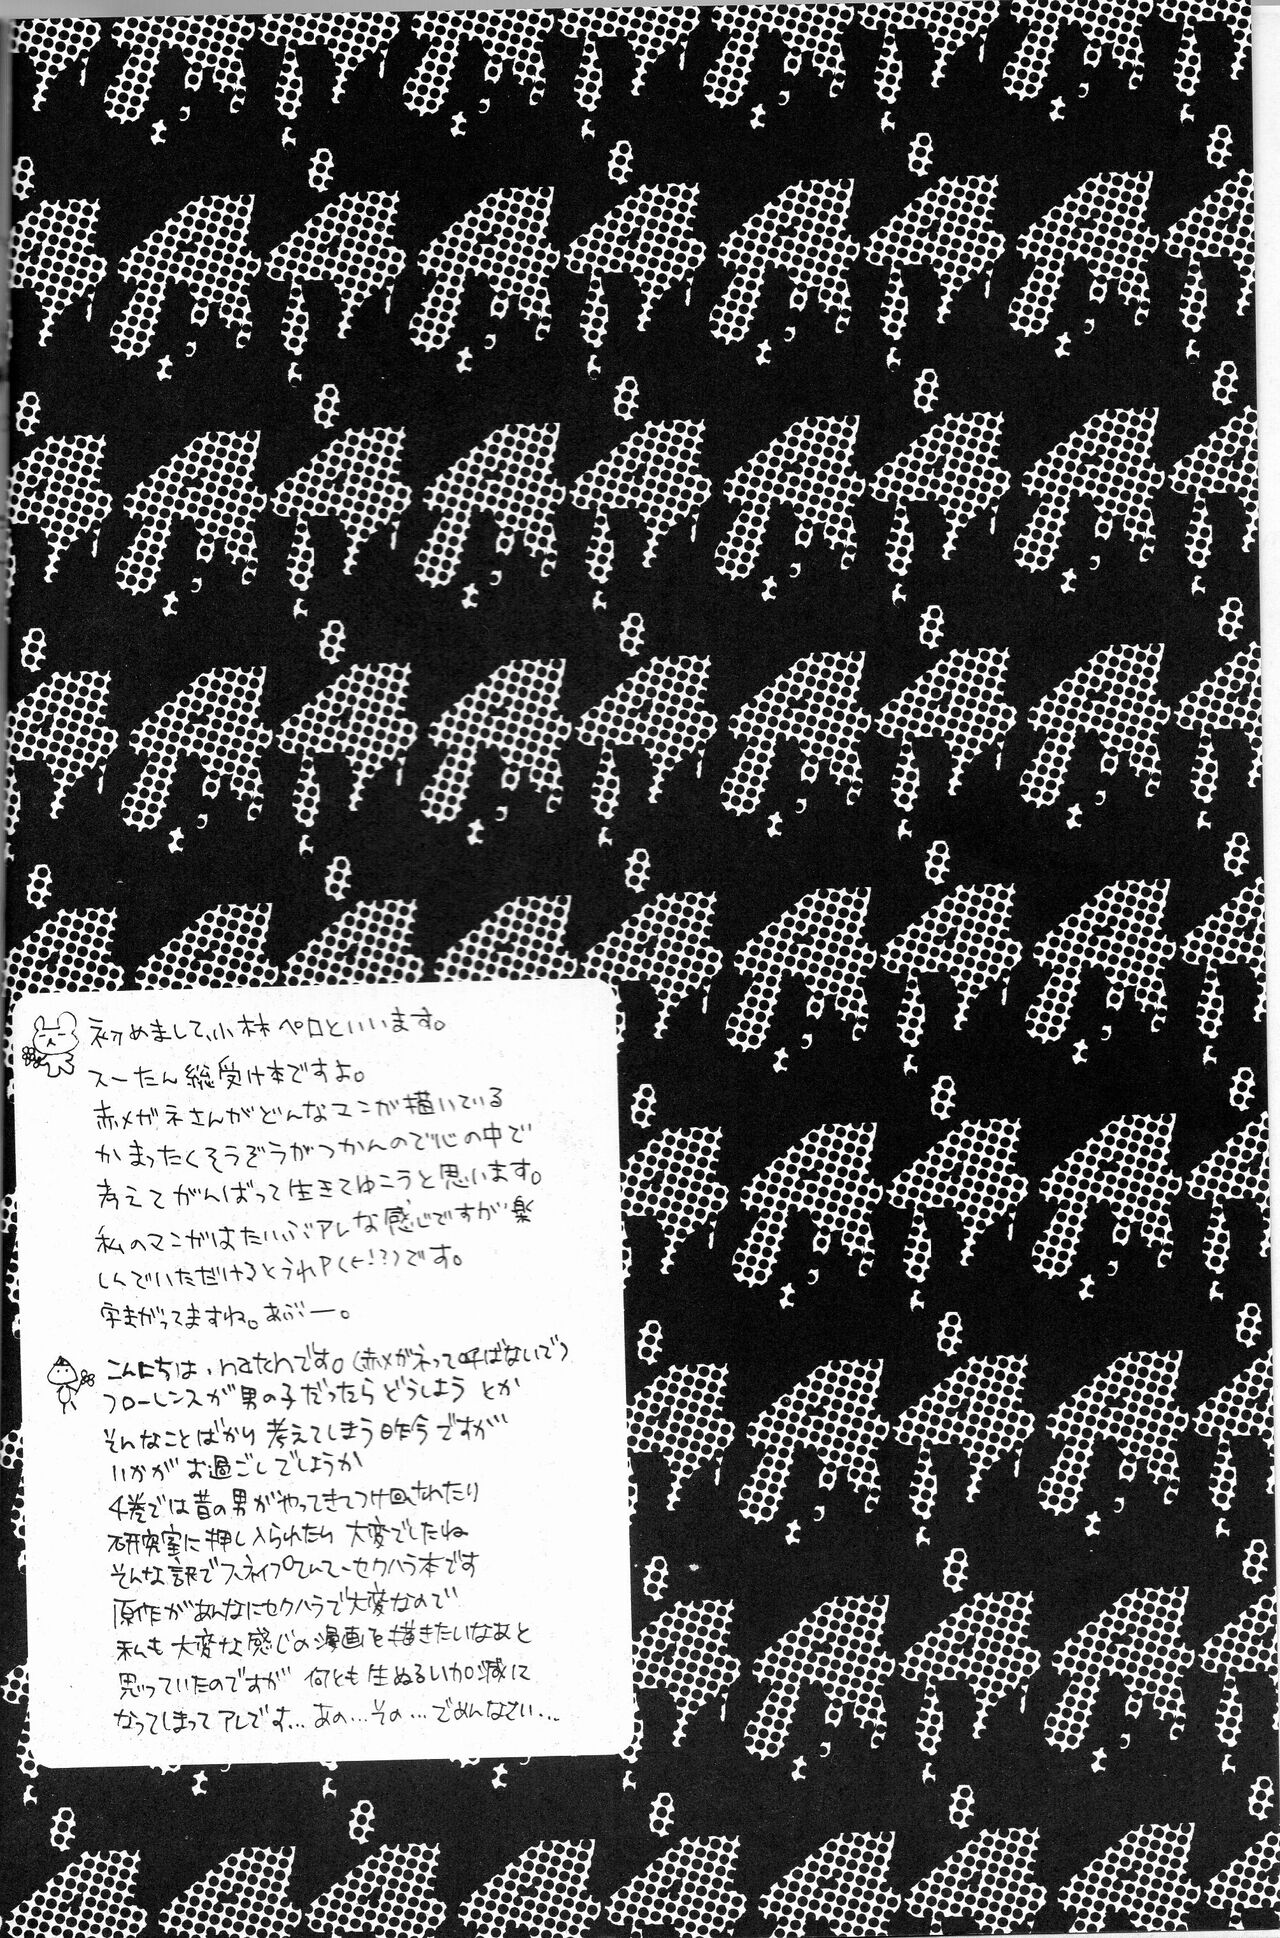 初めまして、小林ペロといいます。
スーたん総受け本ですよ。
赤メガネさんがどんなマンガ描いている
かまったくそうぞうがつかんので心の中で
考えてがんばって生きてゆこうと思います。
私のマンガはだいぶアレな感じですが楽
しんでいただけるとうれP(ヒ!?)です。
字まがってますね。あぶー。
こんにちは、natanです。(赤メガネって呼ばないで)
フローレンスが男の子だったらどうしよう とか
そんなことばかり考えてしまう昨今ですが
いかがお過ごしでしょうか
4巻では昔の男がやってきてつけ回されたり
研究室に押し入られたり 大変でしたね
そんな訳でスネイプてんてーセクハラ本です
原作があんなにセクハラで大変なので
私も大変な感じの漫画を描きたいなあと
思っていたのですが 何とも生ぬるい加減に
なってしまってアレです…あの…その…ごめんなさい…